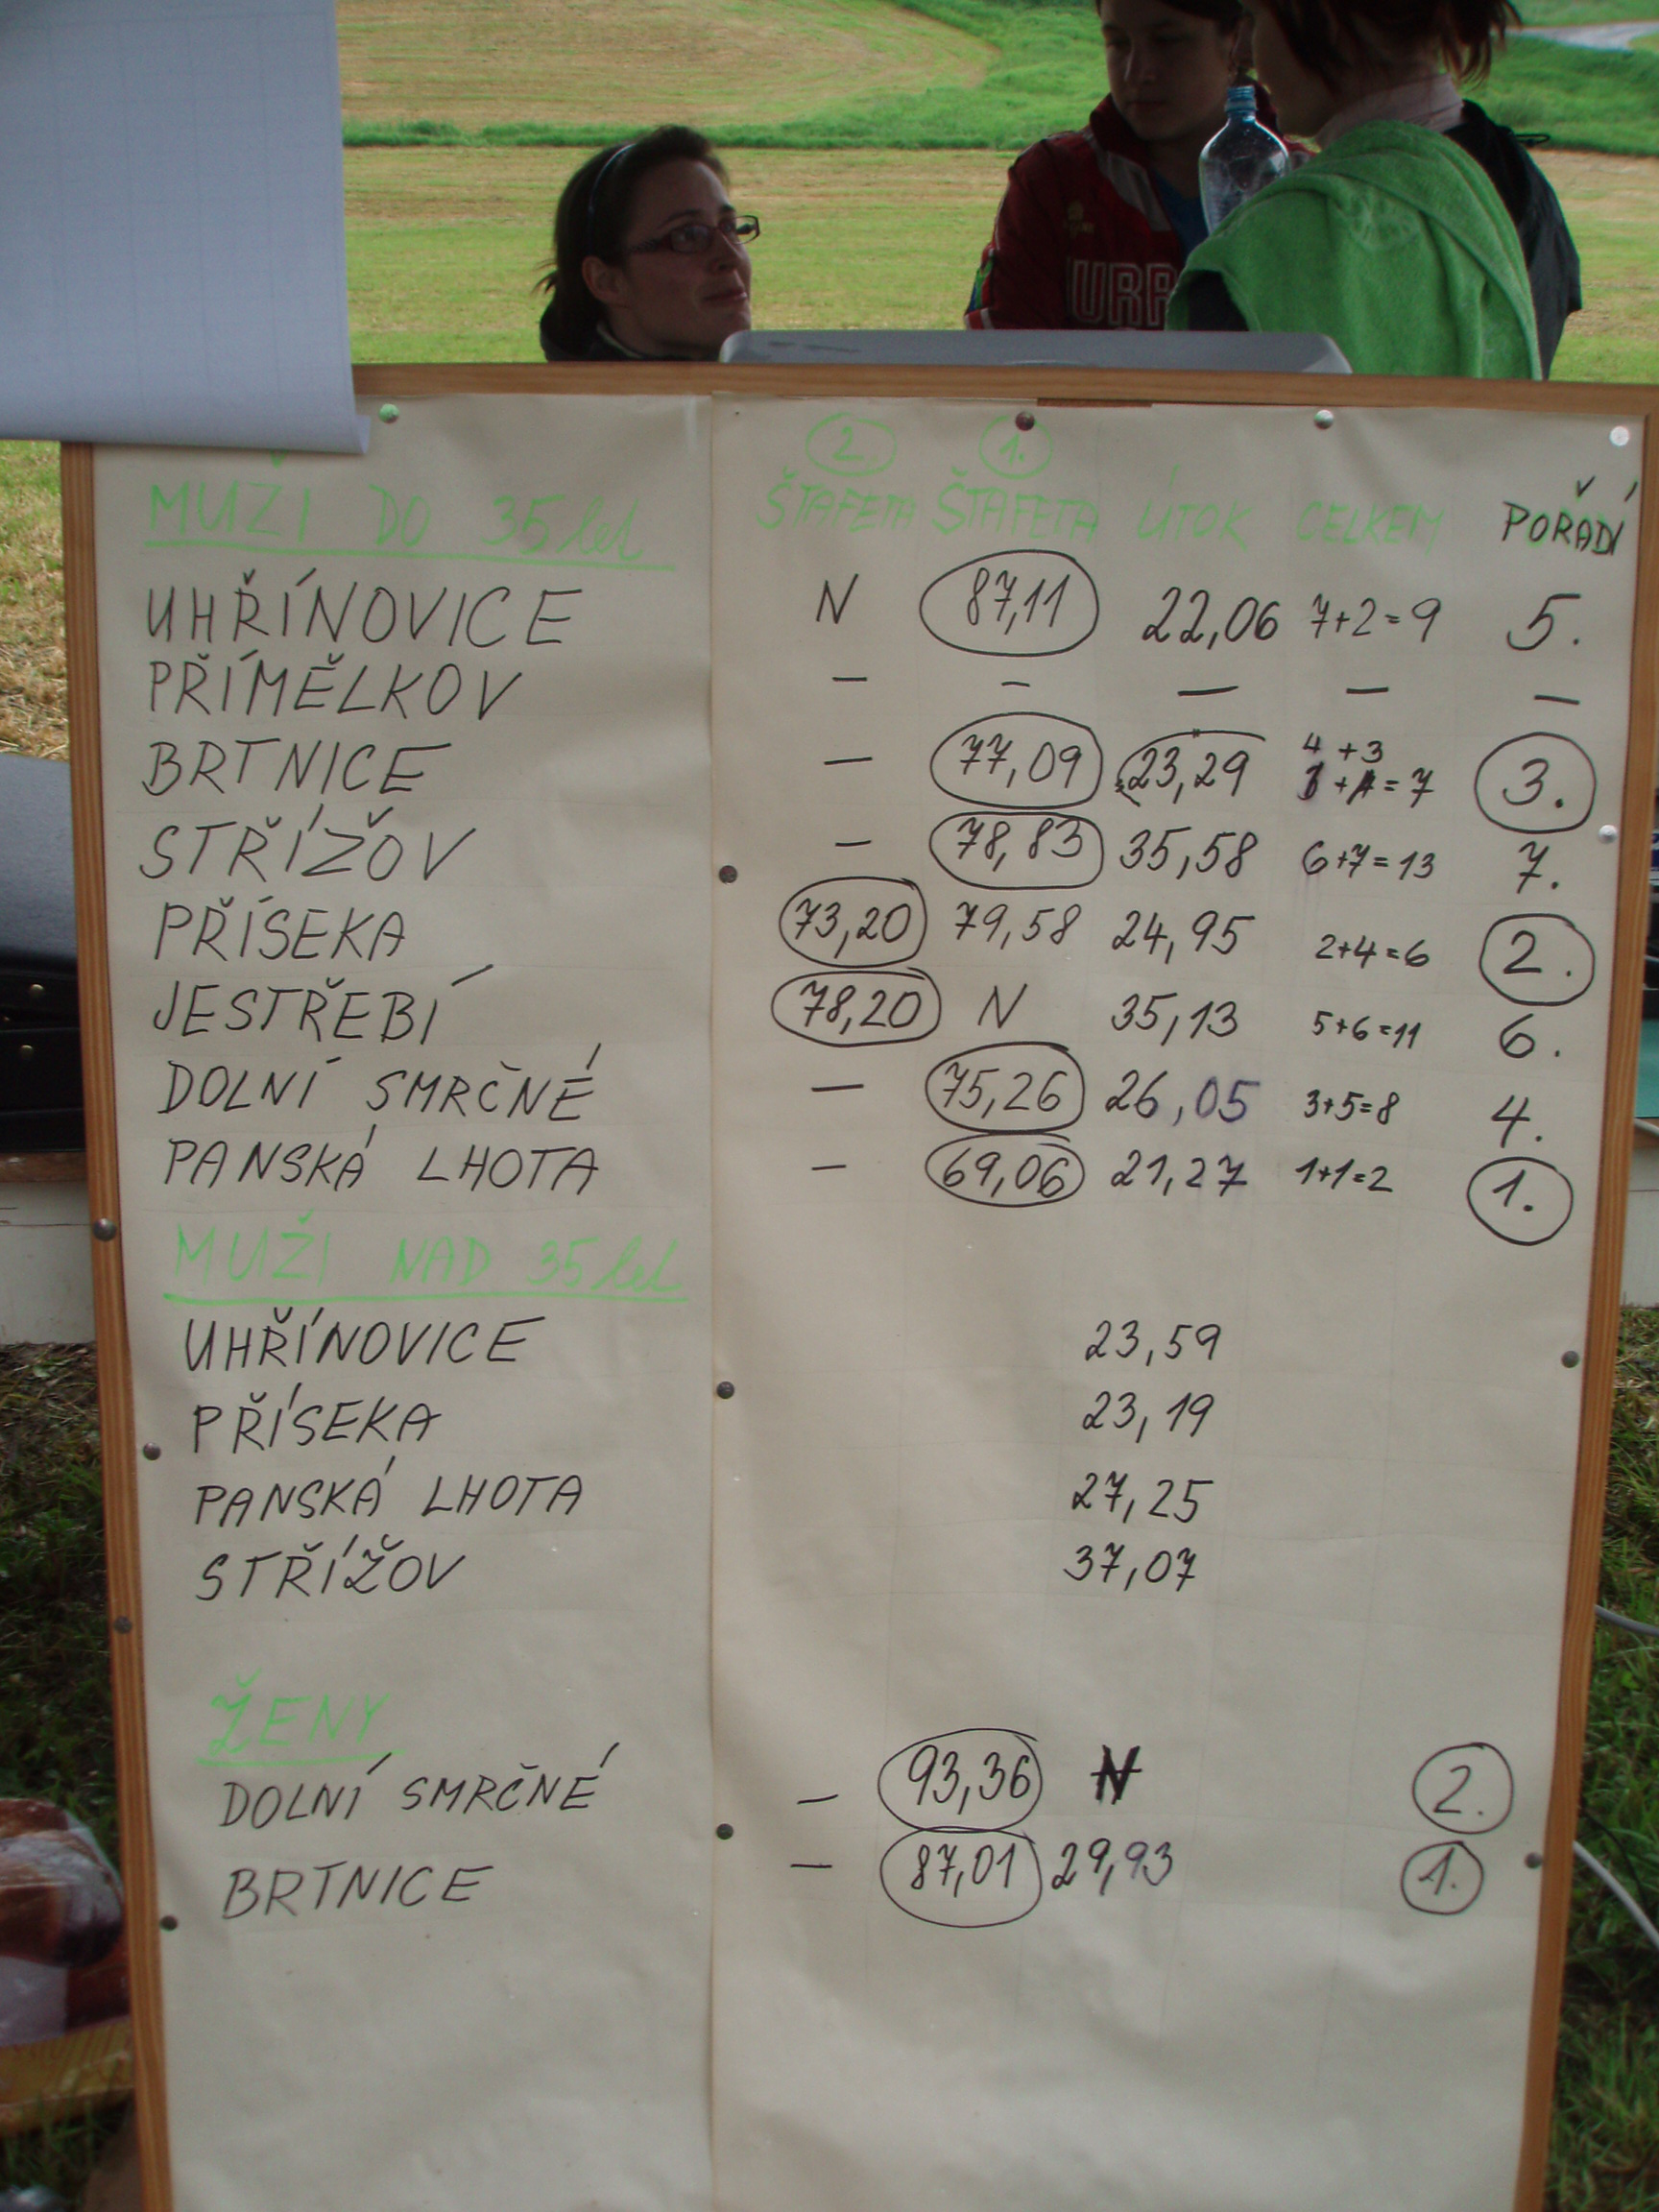 2. 1.
MUŽI DO 35 let ŠTAFETA ŠTAFETA ÚTOK CELKEM POŘADÍ
UHŘÍNOVICE N 87,11 22,06 7+2=9 5.
PŘÍMĚLKOV — — — — —
BRTNICE — 77,09 23,29 4+3=7 3.
STŘÍŽOV — 78,83 35,58 6+7=13 7.
PŘÍSEKA 73,20 79,58 24,95 2+4=6 2.
JESTŘEBÍ 78,20 N 35,13 5+6=11 6.
DOLNÍ SMRČNÉ — 75,26 26,05 3+5=8 4.
PANSKÁ LHOTA — 69,06 21,27 1+1=2 1.
MUŽI NAD 35 let
UHŘÍNOVICE 23,59
PŘÍSEKA 23,19
PANSKÁ LHOTA 27,25
STŘÍŽOV 37,07
ŽENY
DOLNÍ SMRČNÉ — 93,36 N 2.
BRTNICE — 87,01 29,93 1.